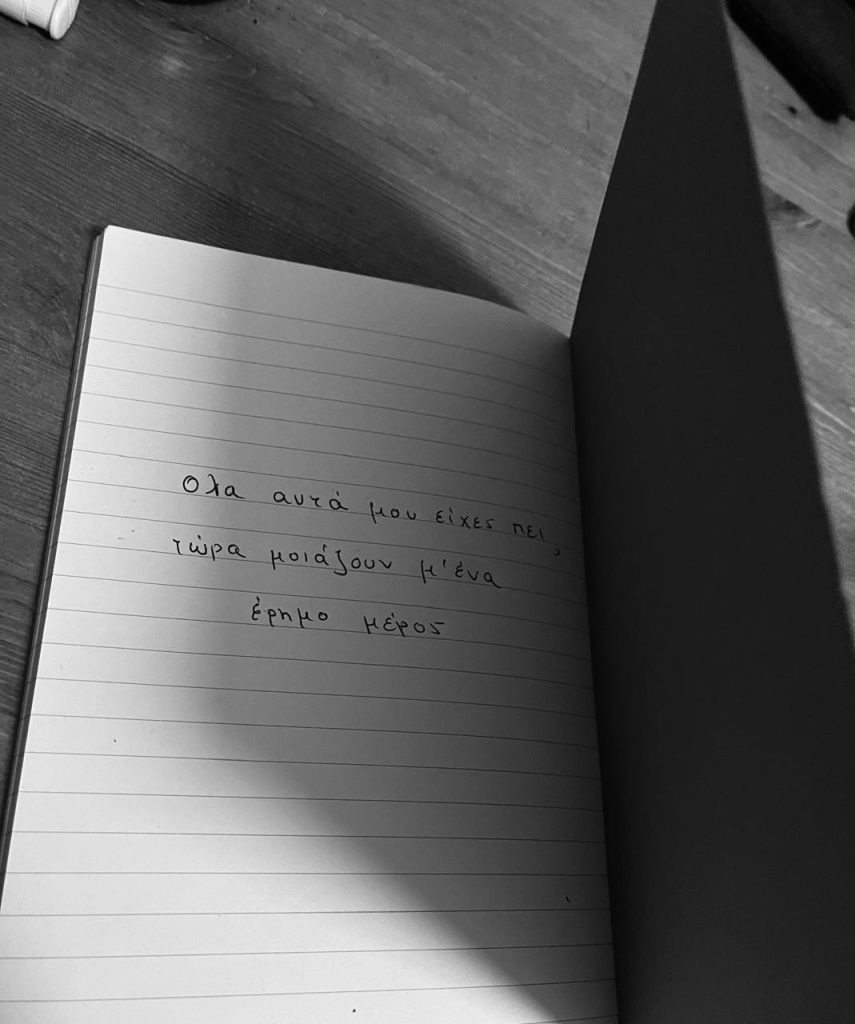 Ολα αυτά μου είχες πει,
τώρα μοιάζουν μ'ένα
έρημο μέρος